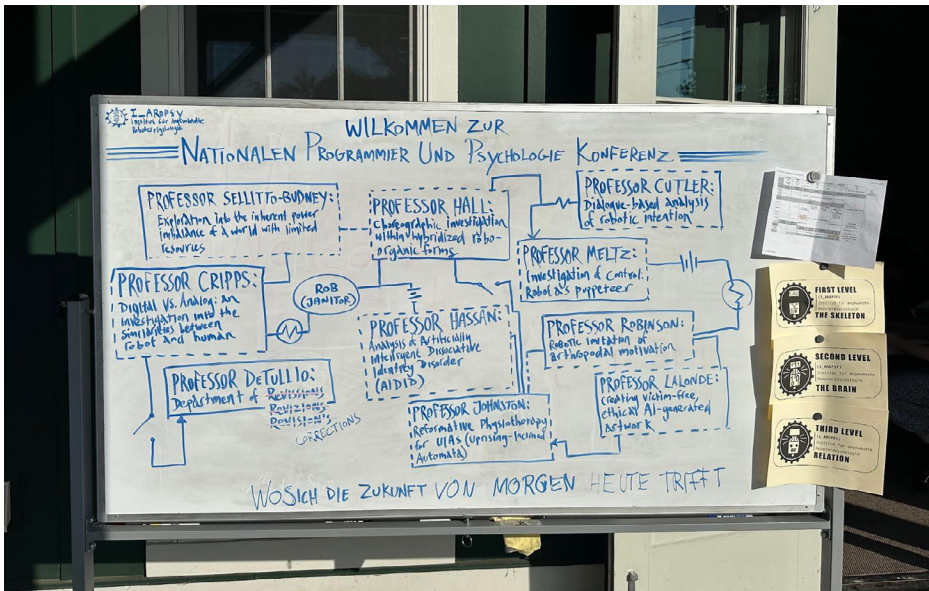 I_AROPSY
Institut für angewandte
Roboterpsychologie
WILKOMMEN ZUR
NATIONALEN PROGRAMMIER UND PSYCHOLOGIE KONFERENZ
PROFESSOR SELLITTO-BUDNEY:
Exploration into the inherent power
imbalance of a world with limited
resources
PROFESSOR HALL:
Choreographic investigation
within hybridized robo-
organic forms
PROFESSOR CUTLER:
Dialogue-based analysis
of robotic intention
PROFESSOR MELTZ:
Investigation of control:
Robot as puppeteer
PROFESSOR CRIPPS:
Digital vs. Analog: an
investigation into the
similarities between
robot and human
ROB
(JANITOR)
PROFESSOR HASSAN:
Analysis of Artificially
Intelligent Dissociative
Identity Disorder
(AIDID)
PROFESSOR ROBINSON:
Robotic imitation of
arthropodal motivation
PROFESSOR DETULLIO:
Department of REVISIONS
REVIZIONS
REVISION'S
CORRECTIONS
PROFESSOR JOHNSTON:
Reformative Physiotherapy
for UIAs (Uprising-Inclined
Automata)
PROFESSOR LALONDE:
Creating victim-free,
ethical AI-generated
artwork
WO SICH DIE ZUKUNFT VON MORGEN HEUTE TRIFFT
FIRST LEVEL
(I_AROPSY)
Institut für angewandte
Roboterpsychologie
THE SKELETON
SECOND LEVEL
(I_AROPSY)
Institut für angewandte
Roboterpsychologie
THE BRAIN
THIRD LEVEL
(I_AROPSY)
Institut für angewandte
Roboterpsychologie
RELATION